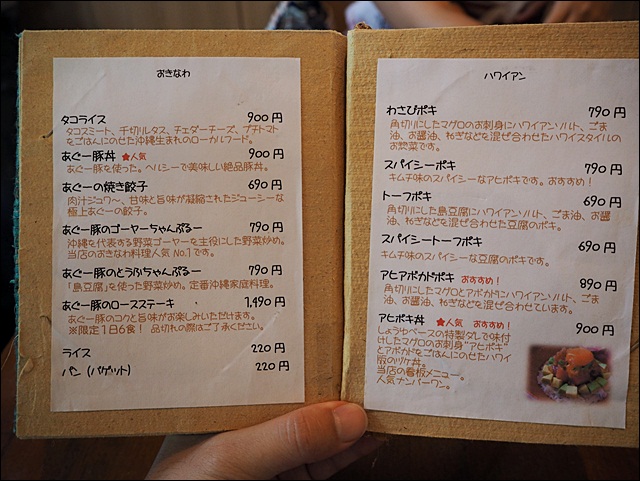 おきなわ
タコライス 900円
タコスミート、千切りレタス、チェダーチーズ、プチトマト
をごはんにのせた沖縄生まれのローカルフード。
あぐー豚丼 ★人気 900円
あぐー豚を使った。ヘルシーで美味しい絶品豚丼。
あぐーの焼き餃子 690円
肉汁ジュワ～、甘味と旨味が凝縮されたジューシーな
極上あぐーの餃子。
あぐー豚のゴーヤーちゃんぷるー 790円
沖縄を代表する野菜ゴーヤーを主役にした野菜炒め。
当店のおきなわ料理人気No.1です。
あぐー豚のとうふちゃんぷるー 790円
「島豆腐」を使った野菜炒め。定番沖縄家庭料理。
あぐー豚のロースステーキ 1,490円
あぐー豚のコクと旨みがお楽しみいただけます。
※限定1日6食！ 品切れの際はご了承ください。
ライス 220円
パン（バゲット） 220円
ハワイアン
わさびポキ 790円
角切りにしたマグロのお刺身にハワイアンソルト、ごま
油、お醤油、ねぎなどを混ぜ合わせたハワイスタイルの
お惣菜です。
スパイシーポキ 790円
キムチ味のスパイシーなアヒポキです。おすすめ！
トーフポキ 690円
角切りにした島豆腐にハワイアンソルト、ごま油、お醤
油、ねぎなどを混ぜ合わせた豆腐のポキ。
スパイシートーフポキ 690円
キムチ味のスパイシーな豆腐のポキです。
アヒアボカドポキ おすすめ！ 890円
角切りにしたマグロとアボカドにハワイアンソルト、ごま
油、お醤油、ねぎなどを混ぜ合わせています。
アヒポキ丼 ★人気 おすすめ！ 900円
しょうゆベースの特製ダレで味付
けしたマグロのお刺身"アヒポキ"
とアボカドをごはんにのせたハワイ
版のヅケ丼。
当店の看板メニュー。
人気ナンバーワン。